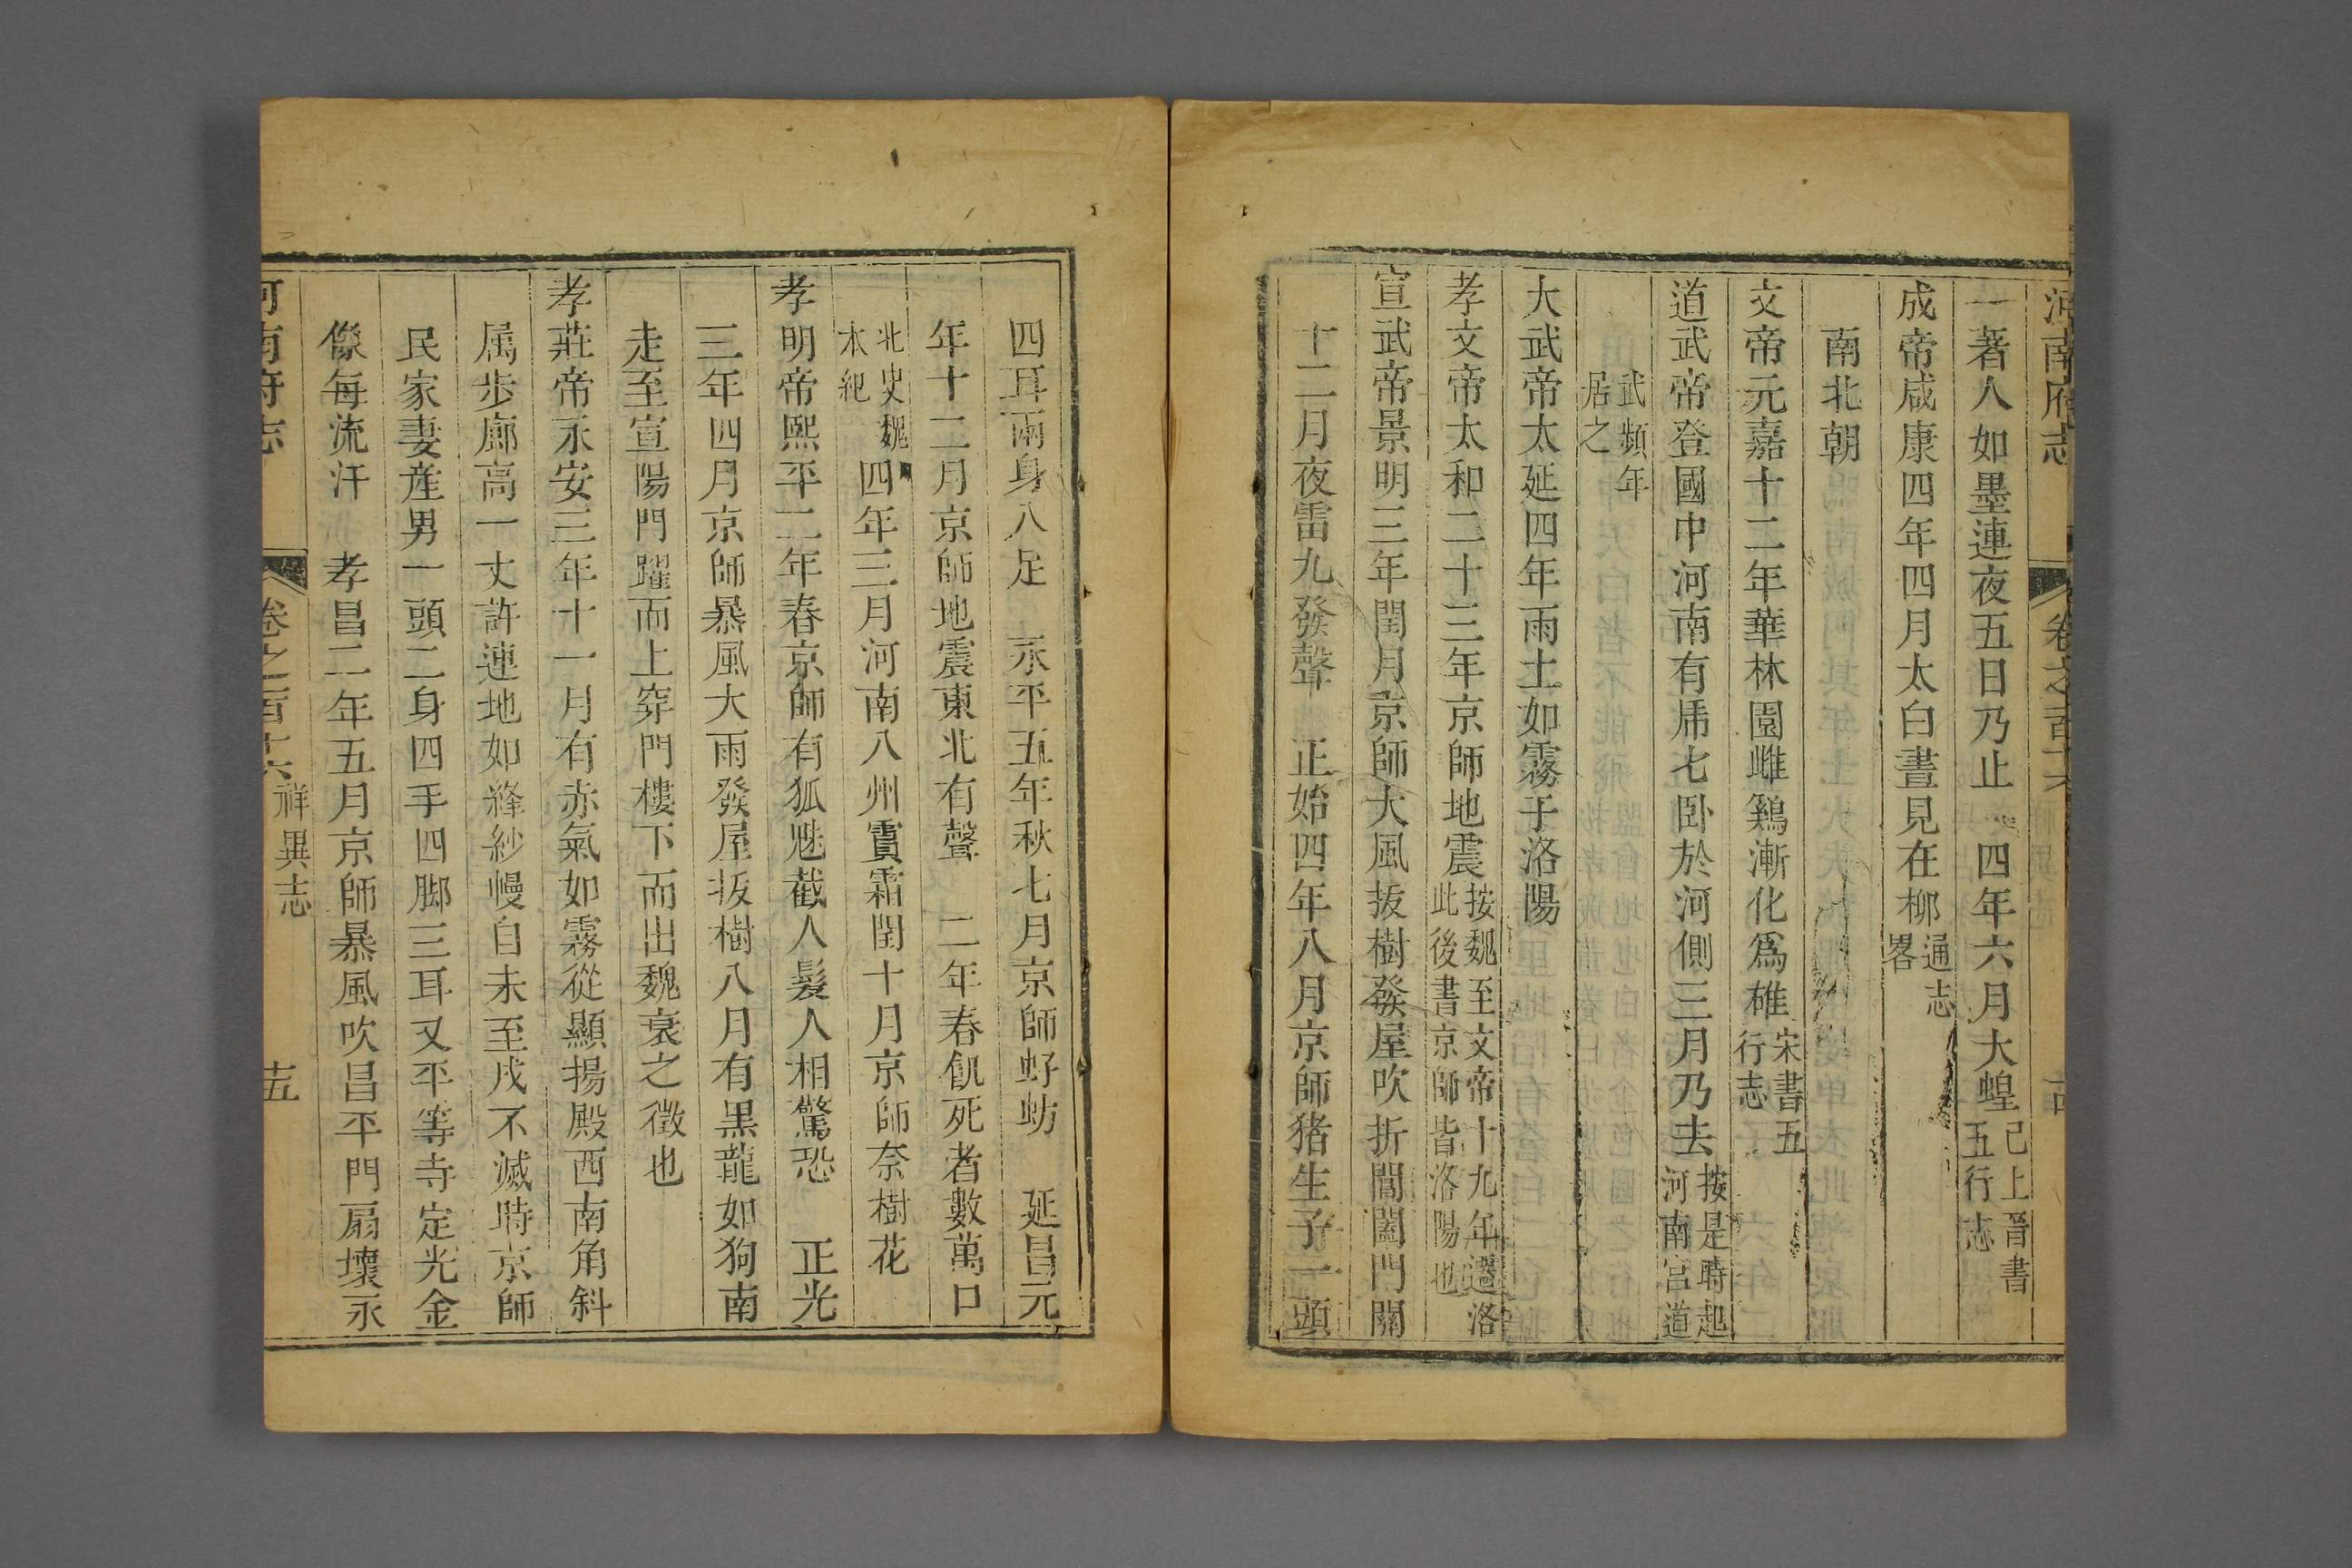 河南府志 卷之百十六 十四
一著人如墨連夜五日乃止 四年六月大蝗已上晉書五行志
成帝咸康四年四月太白晝見在柳通志畧
南北朝
文帝元嘉十二年華林園雌鷄漸化爲雄宋書五行志
道武帝登國中河南有乕七卧於河側三月乃去按是時起河南宮道
武頻年居之
大武帝太延四年雨土如霧于洛陽
孝文帝太和二十三年京師地震按魏至文帝十九年遷洛此後書京師皆洛陽也
宣武帝景明三年閏月京師大風拔樹發屋吹折閶闔門關
十二月夜雷九發聲 正始四年八月京師猪生子一頭
四耳兩身八足 永平五年秋七月京師虸蚄 延昌元
年十二月京師地震東北有聲 二年春飢死者數萬口
北史魏本紀 四年三月河南八州霣霜閏十月京師奈樹花
孝明帝熙平二年春京師有狐魅截人髮人相驚恐 正光
三年四月京師暴風大雨發屋拔樹八月有黑龍如狗南
走至宣陽門躍而上穿門樓下而出魏衰之徵也
孝莊帝永安三年十一月有赤氣如霧從顯揚殿西南角斜
属步廊高一丈許連地如絳紗幔自未至戌不滅時京師
民家妻産男一頭二身四手四脚三耳又平等寺定光金
像每流汗 孝昌二年五月京師暴風吹昌平門扇壞永
河南府志 卷之百十六祥異志 十五